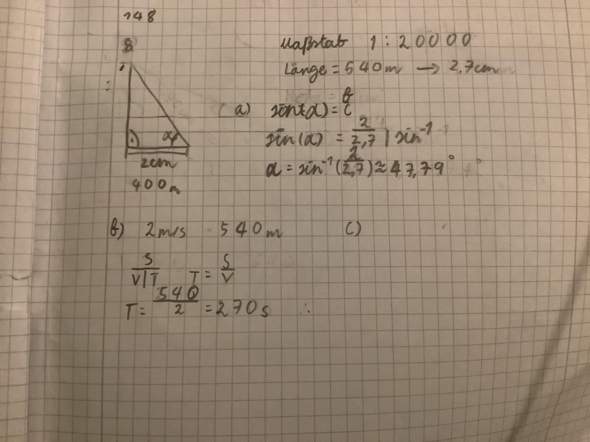 148
B
Maßstab 1 : 20000
Länge = 540m → 2,7cm
a) sin(α) = b/c
sin(α) = 2/2,7 | sin⁻¹
α = sin⁻¹(2/2,7) ≈ 47,79°
α
2cm
400m
b) 2m/s 540m c)
S/V|T T = S/V
T = 540/2 = 270s